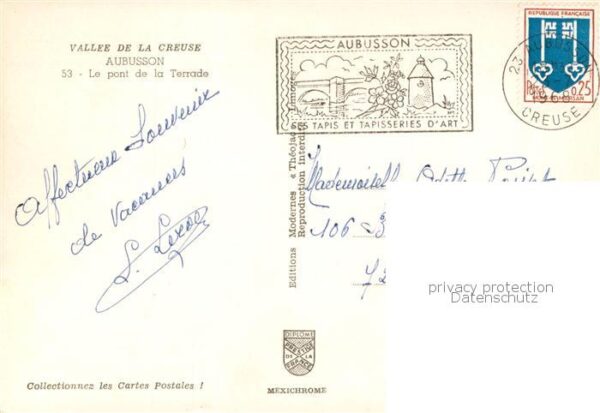 VALLEE DE LA CREUSE
AUBUSSON
53 - Le pont de la Terrade
Affectueux Souvenir
de Vacances
Collectionnez les Cartes Postales !
Editions Modernes « Théojac »
Reproduction interdite
DIPLOME
PRESTIGE
DE LA
FRANCE
MEXICHROME
AUBUSSON
SES TAPIS ET TAPISSERIES D'ART
REPUBLIQUE FRANÇAISE
0,25
23 AUBUSSON
CREUSE
Mademoiselle Odette
106
72
privacy protection
Datenschutz